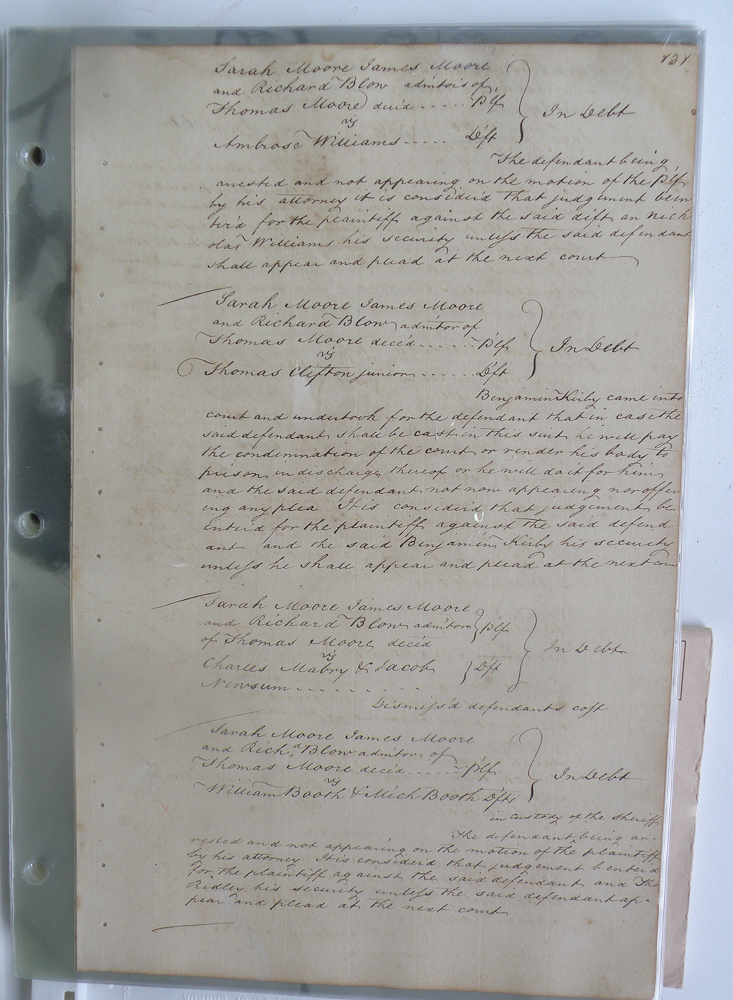 Sarah Moore James Moore
and Richard Blow admitors of
Thomas Moore decid ..... Plf
vs
Ambrose Williams ..... Dft
In Debt
The defendant being
arrested and not appearing on the motion of the Plf
by his attorney it is considerd that judgment be en
terd for the plaintiff against the said deft an Nich
olas Williams his security unless the said defendant
shall appear and plead at the next court
Sarah Moore James Moore
and Richard Blow admitor of
Thomas Moore decid ..... Plf
vs
Thomas Clifton junior ...... Dft
In Debt
Benjamin Kirby came into
court and undertook for the defendant that in case the
said defendant shall be cast in this suit he will pay
the condemnation of the court or render his body to
prison in discharge thereof or he will do it for him
and the said defendant not now appearing nor offer
ing any plea It is considerd that judgement be
enterd for the plaintiff against the said defend
ant and the said Benjamin Kirby his security
unless he shall appear and plead at the next cour
Sarah Moore James Moore
and Richard Blow admitors Plf
of Thomas Moore decid
vs
Charles Mabry & Jacob Dft
Newsum .........
In Debt
Dismiss'd defendants cost
Sarah Moore James Moore
and Richd Blow admitor of
Thomas Moore decid ...... Plf
vs
William Booth & Mich Booth Dfts
In Debt
in custody of the Sheriff
The defendant being ar-
rested and not appearing on the motion of the plaintiff
by his attorney It is considerd that judgment b enterd
for the plaintiff against the said defendant and Tho
Ridley his security unless the said defendant ap-
pear and plead at the next court